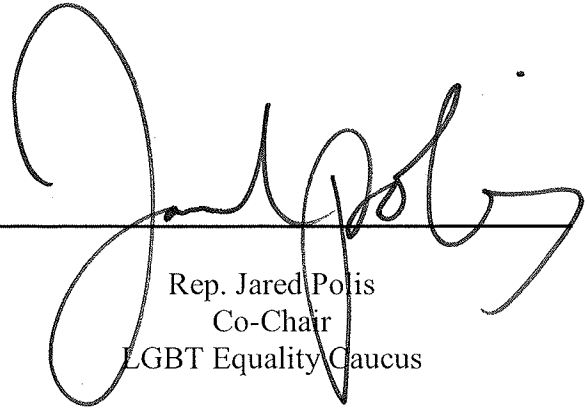 Jared Polis
Rep. Jared Polis
Co-Chair
LGBT Equality Caucus